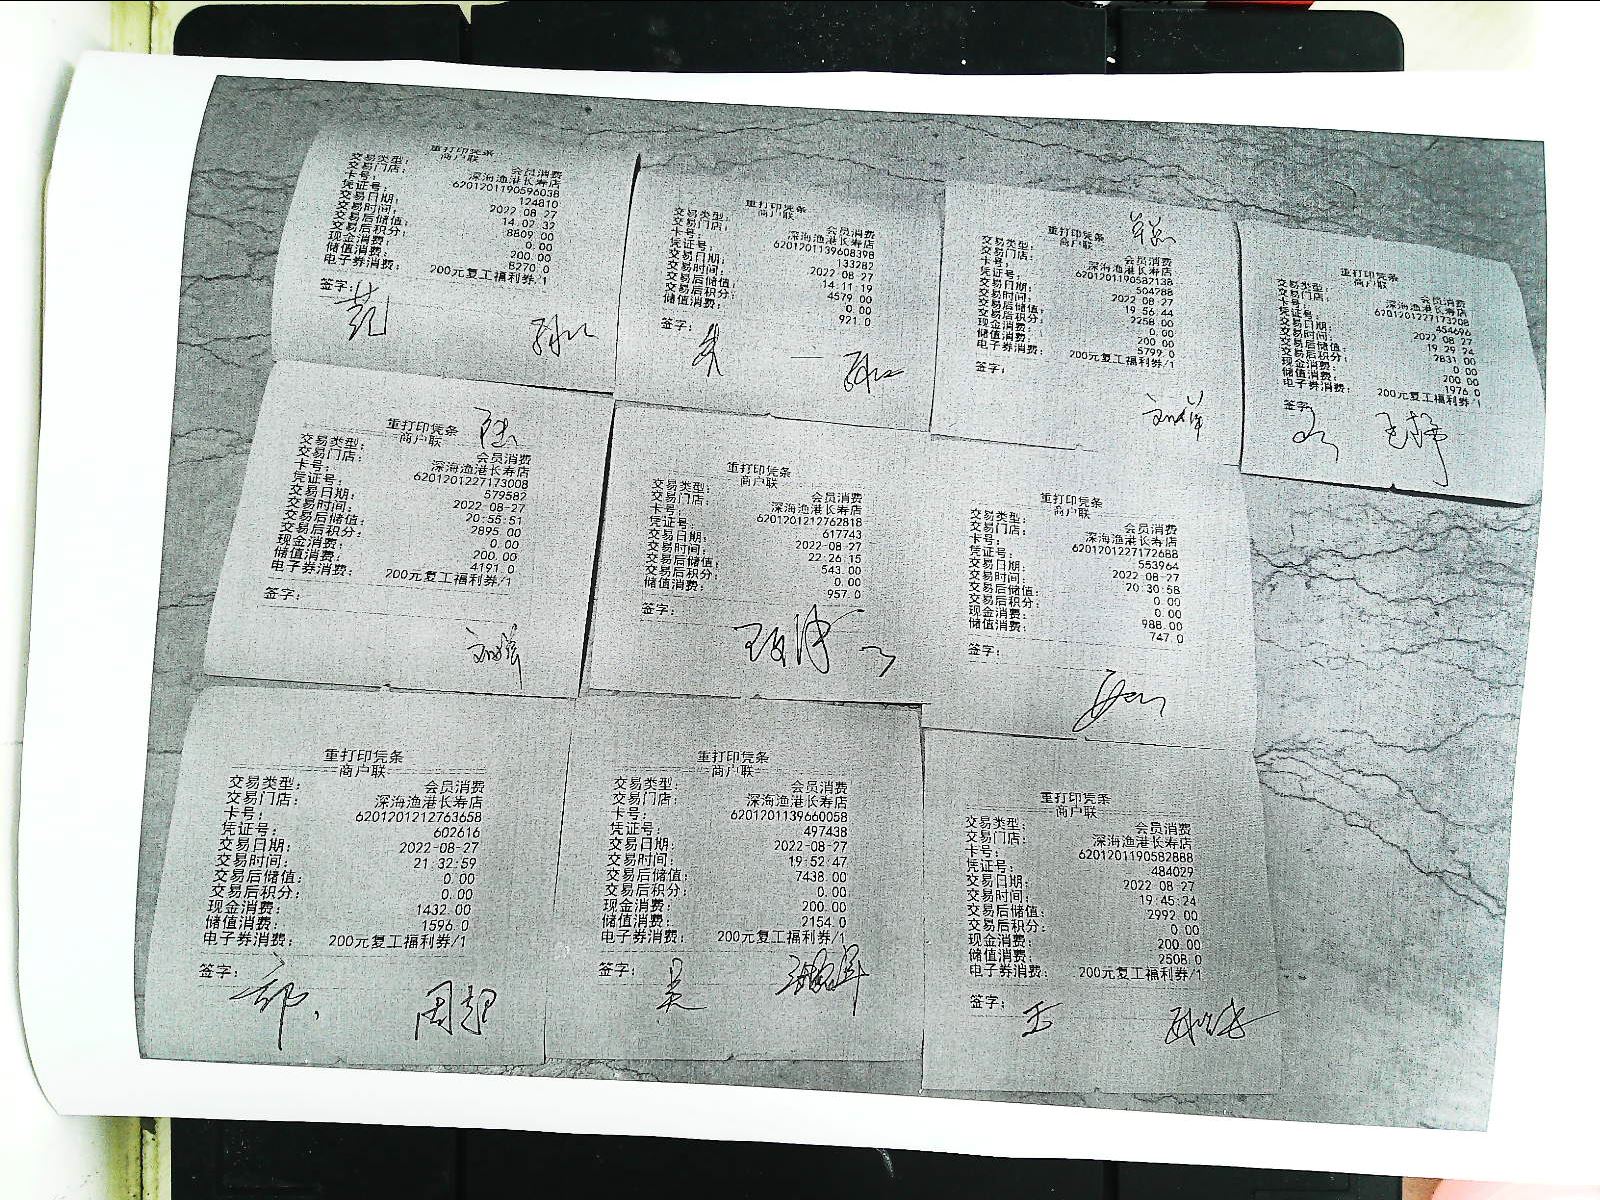 重打印凭条
商户联
交易类型: 会员消费
交易门店: 深海渔港长寿店
卡号: 6201201190596038
凭证号: 124810
交易日期: 2022-08-27
交易时间: 14:02:32
交易后储值: 8809.00
交易后积分: 0.00
现金消费: 200.00
储值消费: 8270.0
电子券消费: 200元复工福利券/1
签字:
重打印凭条
商户联
交易类型: 会员消费
交易门店: 深海渔港长寿店
卡号: 6201201139608398
凭证号: 133282
交易日期: 2022-08-27
交易时间: 14:11:19
交易后储值: 4579.00
交易后积分: 0.00
储值消费: 921.0
签字:
重打印凭条
商户联
交易类型: 会员消费
交易门店: 深海渔港长寿店
卡号: 6201201190582138
凭证号: 504288
交易日期: 2022-08-27
交易时间: 19:56:44
交易后储值: 2258.00
交易后积分: 0.00
现金消费: 200.00
储值消费: 5799.0
电子券消费: 200元复工福利券/1
签字:
重打印凭条
商户联
交易类型: 会员消费
交易门店: 深海渔港长寿店
卡号: 6201201227173208
凭证号: 454696
交易日期: 2022-08-27
交易时间: 19:29:24
交易后储值: 2831.00
交易后积分: 0.00
现金消费: 200.00
储值消费: 1976.0
电子券消费: 200元复工福利券/1
签字:
重打印凭条
商户联
交易类型: 会员消费
交易门店: 深海渔港长寿店
卡号: 6201201227173008
凭证号: 579582
交易日期: 2022-08-27
交易时间: 20:55:51
交易后储值: 2895.00
交易后积分: 0.00
现金消费: 200.00
储值消费: 4191.0
电子券消费: 200元复工福利券/1
签字:
重打印凭条
商户联
交易类型: 会员消费
交易门店: 深海渔港长寿店
卡号: 6201201212762818
凭证号: 617743
交易日期: 2022-08-27
交易时间: 22:26:15
交易后储值: 543.00
交易后积分: 0.00
储值消费: 957.0
签字:
重打印凭条
商户联
交易类型: 会员消费
交易门店: 深海渔港长寿店
卡号: 6201201227172688
凭证号: 553964
交易日期: 2022-08-27
交易时间: 20:30:58
交易后储值: 0.00
交易后积分: 0.00
现金消费: 988.00
储值消费: 747.0
签字:
重打印凭条
商户联
交易类型: 会员消费
交易门店: 深海渔港长寿店
卡号: 6201201212763658
凭证号: 602616
交易日期: 2022-08-27
交易时间: 21:32:59
交易后储值: 0.00
交易后积分: 0.00
现金消费: 1432.00
储值消费: 1596.0
电子券消费: 200元复工福利券/1
签字:
周超
重打印凭条
商户联
交易类型: 会员消费
交易门店: 深海渔港长寿店
卡号: 6201201139660058
凭证号: 497438
交易日期: 2022-08-27
交易时间: 19:52:47
交易后储值: 7438.00
交易后积分: 0.00
现金消费: 200.00
储值消费: 2154.0
电子券消费: 200元复工福利券/1
签字: 吴
重打印凭条
商户联
交易类型: 会员消费
交易门店: 深海渔港长寿店
卡号: 6201201190582888
凭证号: 484029
交易日期: 2022-08-27
交易时间: 19:45:24
交易后储值: 2992.00
交易后积分: 0.00
现金消费: 200.00
储值消费: 2508.0
电子券消费: 200元复工福利券/1
签字: 王